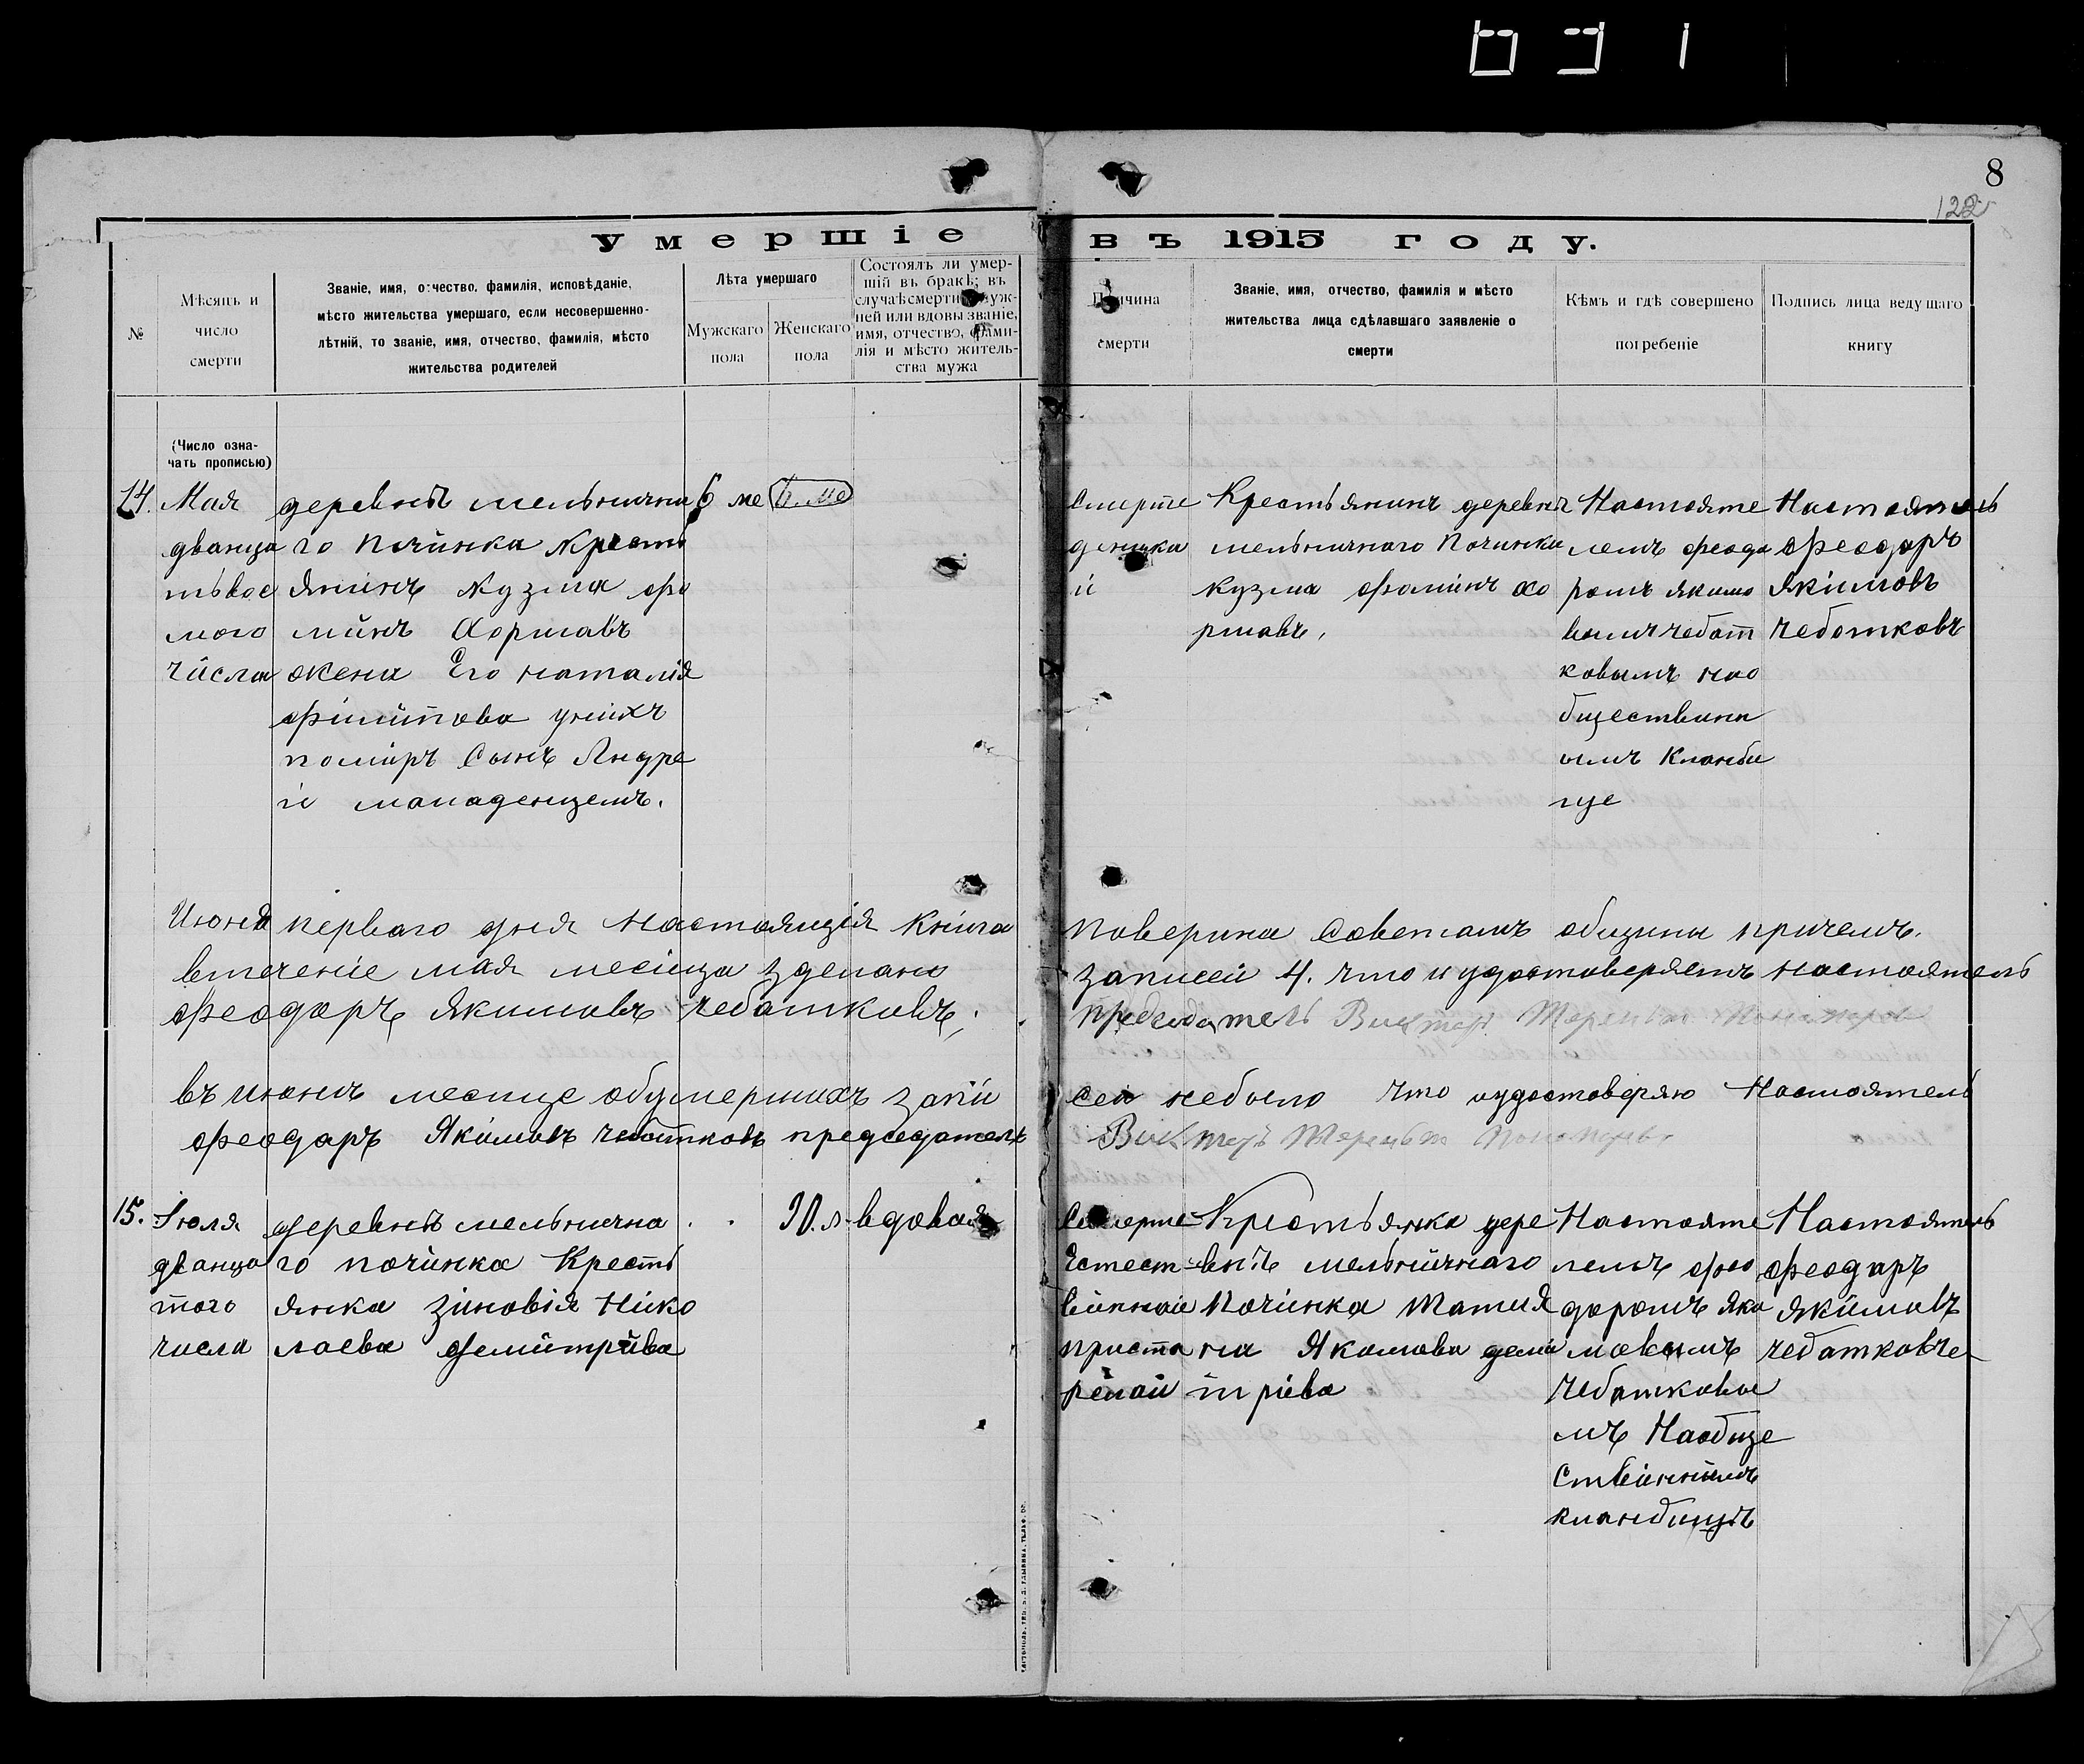 8
122
умершіе въ 1915 году.
№
Мѣсяцъ и
число
смерти
Званіе, имя, отчество, фамилія, исповѣданіе,
мѣсто жительства умершаго, если несовершенно-
лѣтній, то званіе, имя, отчество, фамилія, мѣсто
жительства родителей
Лѣта умершаго
Мужскаго
пола
Женскаго
пола
Состоялъ ли умер-
шій въ бракѣ; въ
случаѣ смерти муж-
ней или вдовы званіе,
имя, отчество, фами-
лія и мѣсто житель-
ства мужа
Причина
смерти
Званіе, имя, отчество, фамилія и мѣсто
жительства лица сдѣлавшаго заявленіе о
смерти
Кѣмъ и гдѣ совершено
погребеніе
Подпись лица ведущаго
книгу
(Число озна-
чать прописью)
14.
Мая
дванца
тьвос
мого
числа
деревнѣ мельнична
го починка Кресть
янинъ Кузма фо
минъ Хоршавъ
жена Его наталія
филипова унихъ
помиръ Сынъ Андре
й мападенцемъ.
6 ме
6. ме
Смерте
денцка
й
Крестьянинъ деревнѣ
мельничнаго Починка
кузма фоминъ хо
ршавъ.
Настояте
лемъ феодо
ромъ якимо
вымъ чебот
ковымъ нао
бществинн
ымъ Кланби
ще
Настоятель
Феодоръ
якимовъ
чеботковъ
Июня первого дня Настоящія Книга
втечение мая месяца зделано
феодоръ якимовъ чеботковъ,
поверина Советамъ общины причемъ.
записей 4. что и удостоверяетъ настоятель
председатель Виктаръ
въ июнь месице обумершихъ запи
феодоръ Якимовъ чеботковъ председатель
сей небыло что иудостоверяю Настоятель
Виктаръ
15.
Июля
дванца
того
числа
деревнѣ мельнична
го починка Кресть
янка зиновія Нико
лаева демитрива
90. л
вдовая
Смерте
Естест
винной
приста
релой
Крестьянка дере
внѣ мельничнаго
Починка татия
на Якимова деми
триева
Настояте
лемъ фео
доромъ яки
мовымъ
чеботковы
мъ Наобще
ствинными
кланбищѣ
Настоятель
феодаръ
якимовъ
чеботковъ